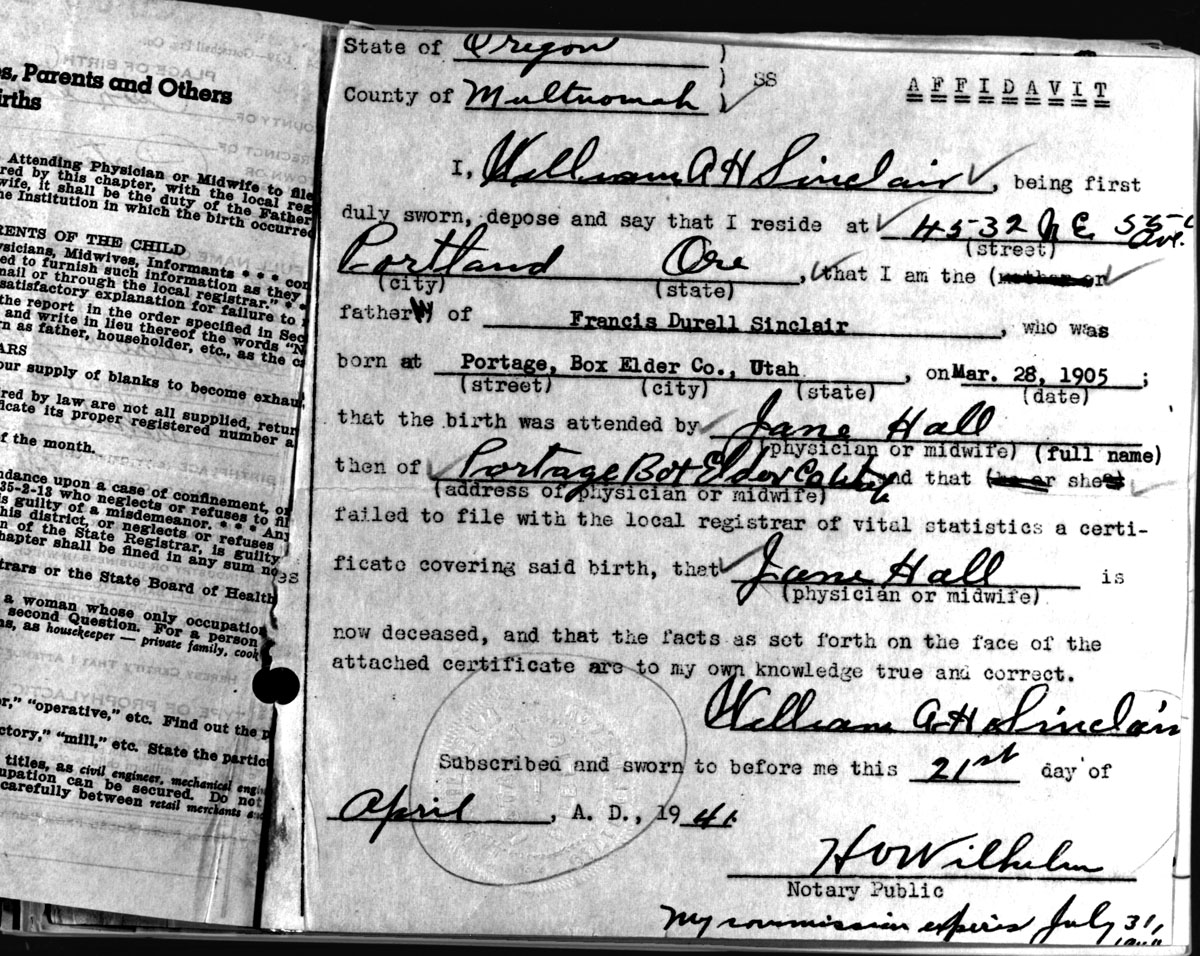 s, Parents and Others
irths
Attending Physician or Midwife to file
red by this chapter, with the local reg
wife, it shall be the duty of the Father
he Institution in which the birth occurred
RENTS OF THE CHILD
ysicians, Midwives, Informants * * * con
ed to furnish such information as they
mail or through the local registrar." * *
satisfactory explanation for failure to
the report in the order specified in Sec
and write in lieu thereof the words "N
rn as father, householder, etc., as the ca
ARS
our supply of blanks to become exhau
red by law are not all supplied, retur
icate its proper registered number a
f the month.
ndance upon a case of confinement, or
35-2-13 who neglects or refuses to fil
is guilty of a misdemeanor. * * * Any
his district, or neglects or refuses
n of the State Registrar, is guilty
hapter shall be fined in any sum no
trars or the State Board of Health
a woman whose only occupation
second Question. For a person
as housekeeper — private family, cook
r," "operative," etc. Find out the p
ctory," "mill," etc. State the partic
titles, as civil engineer, mechanical engin
upation can be secured. Do not
carefully between retail merchants an
State of Oregon )
) ss
County of Multnomah )
AFFIDAVIT
I, William A H Sinclair, being first
duly sworn, depose and say that I reside at 4532 N E 55 Ave.
(street)
Portland Ore, that I am the (mother or
(city) (state)
father) of Francis Durell Sinclair, who was
born at Portage, Box Elder Co., Utah, on Mar. 28, 1905;
(street) (city) (state) (date)
that the birth was attended by Jane Hall
(physician or midwife) (full name)
then of Portage Box Elder Co Utah, and that (he or she)
(address of physician or midwife)
failed to file with the local registrar of vital statistics a certi-
ficate covering said birth, that Jane Hall is
(physician or midwife)
now deceased, and that the facts as set forth on the face of the
attached certificate are to my own knowledge true and correct.
William A. H. Sinclair
Subscribed and sworn to before me this 21st day of
April, A. D., 1941.
H O Wilhelm
Notary Public
My commission expires July 31,